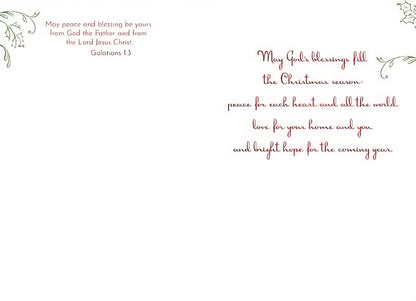 May peace and blessing be yours
from God the Father and from
the Lord Jesus Christ
Galatians 1:3
May God's blessings fill
the Christmas season:
peace for each heart and all the world,
love for your home and you,
and bright hope for the coming year.